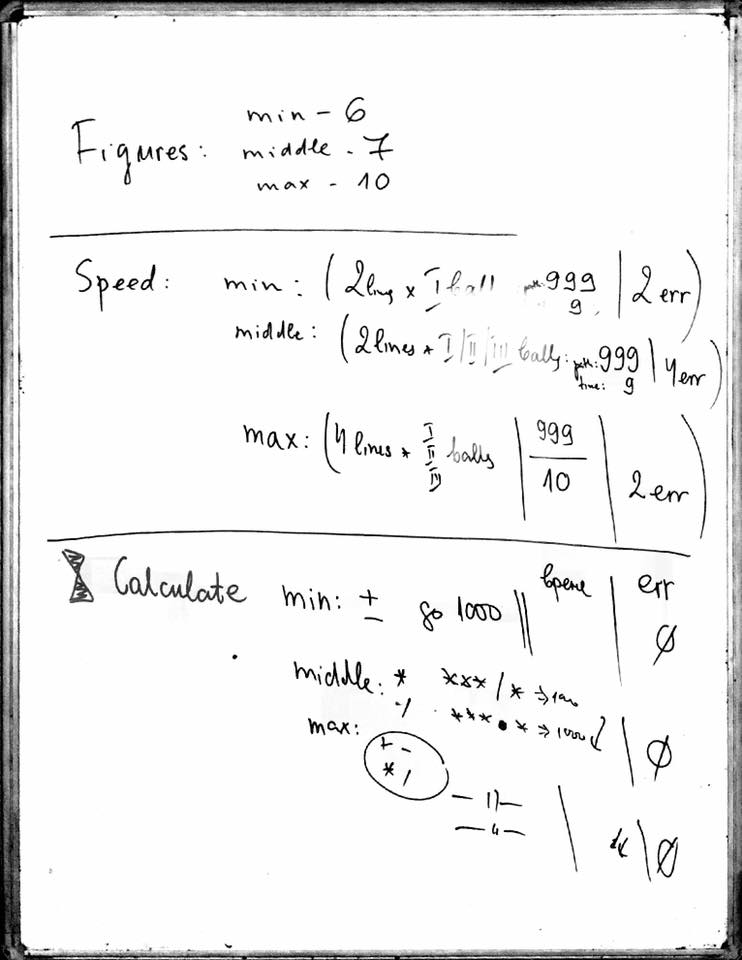 min - 6
Figures: middle - 7
max - 10
Speed: min: ( 2 lines * I ball 999 | 2 err )
9
middle: ( 2 lines * I/II/III balls: path: 999 | 4 err )
time: 9
max: ( 4 lines * I/II/III balls | 999 | 2 err )
10
Calculate min: + - до 1000 || время | err
∅
middle: * *** / * ⇒ 1000
/ *** • * ⇒ 1000 | ∅
max: + -
* /
— 11 —
— 4 — | | ∅